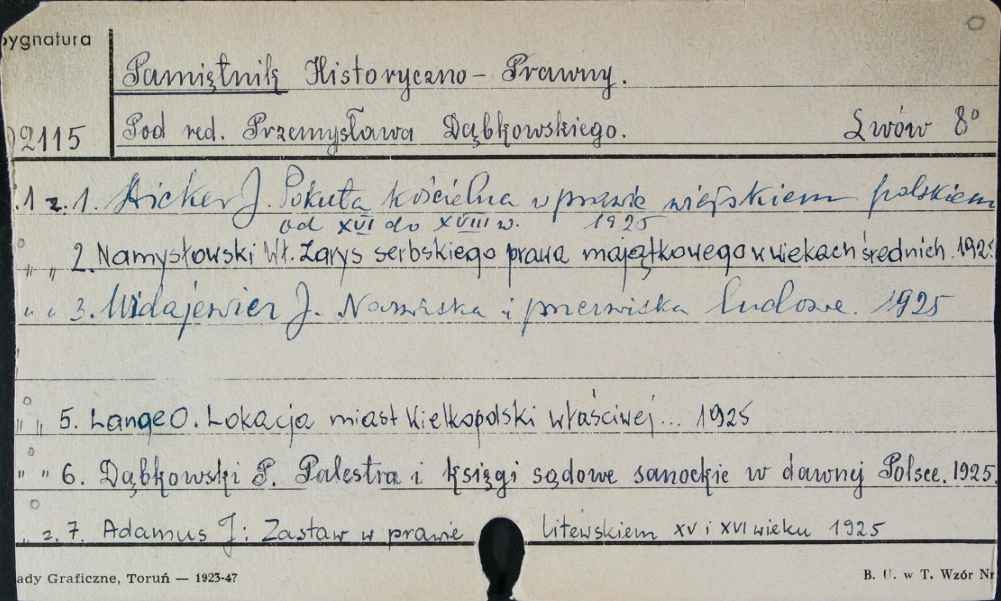 Sygnatura
Pamiętnik Historyczno-Prawny.
02115 Pod red. Przemysława Dąbkowskiego. Lwów 8°
1 z. 1. Hicker J. Pokuta kościelna w prawie wiejskiem polskiem
od XVI do XVIII w. 1925
" " 2. Namysłowski Wł. Zarys serbskiego prawa majątkowego w wiekach średnich. 192
" " 3. Widajewicz J. Nazwiska i przezwiska ludowe. 1925
" " 5. Lange O. Lokacja miast Wielkopolski właściwej... 1925
" " 6. Dąbkowski P. Palestra i księgi sądowe sanockie w dawnej Polsce. 1925.
" z. 7. Adamus J: Zastaw w prawie litewskiem XV i XVI wieku 1925
ady Graficzne, Toruń — 1923-47
B. U. w T. Wzór Nr